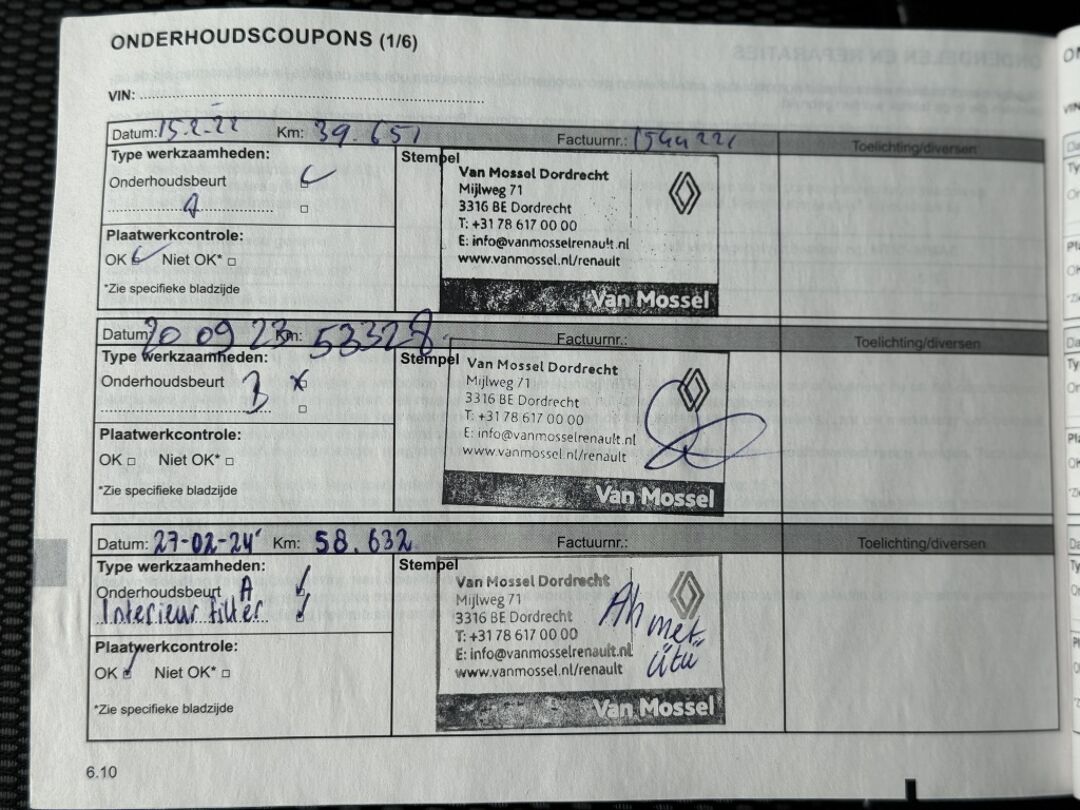 ONDERHOUDSCOUPONS (1/6)
VIN:
Datum: 15.2.22 Km: 39.651 Factuurnr.: Toelichting/diversen
Type werkzaamheden:
Onderhoudsbeurt
A
Plaatwerkcontrole:
OK Niet OK*
*Zie specifieke bladzijde
Stempel
Van Mossel Dordrecht
Mijlweg 71
3316 BE Dordrecht
T: +31 78 617 00 00
E: info@vanmosselrenault.nl
www.vanmossel.nl/renault
Van Mossel
Datum: 20 09 23 Km: 53328 Factuurnr.: Toelichting/diversen
Type werkzaamheden:
Onderhoudsbeurt B
Plaatwerkcontrole:
OK Niet OK*
*Zie specifieke bladzijde
Stempel
Van Mossel Dordrecht
Mijlweg 71
3316 BE Dordrecht
T: +31 78 617 00 00
E: info@vanmosselrenault.nl
www.vanmossel.nl/renault
Van Mossel
Datum: 27-02-24 Km: 58.632 Factuurnr.: Toelichting/diversen
Type werkzaamheden:
Onderhoudsbeurt A
Interieur filter
Plaatwerkcontrole:
OK Niet OK*
*Zie specifieke bladzijde
Stempel
Van Mossel Dordrecht
Mijlweg 71
3316 BE Dordrecht
T: +31 78 617 00 00
E: info@vanmosselrenault.nl
www.vanmossel.nl/renault
Van Mossel
Ahmet
ütü
6.10